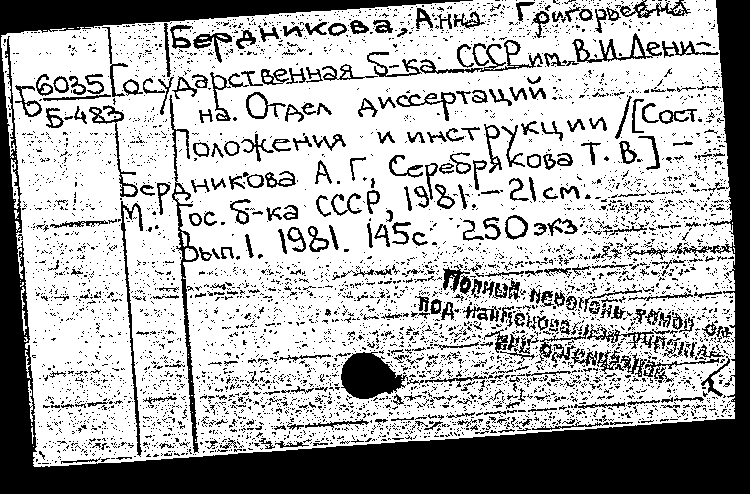 Бердникова, Анна Григорьевна
Б 6035 Государственная б-ка СССР им. В.И. Лени-
Б-483 на. Отдел диссертаций.
Положения и инструкции / [Сост.
Бердникова А. Г., Серебрякова Т. В.] . —
М.: Гос. б-ка СССР, 1981. — 21 см.
Вып. 1. 1981. 145 с. 250 экз.
Полный перечень томов см
под наименованием учрежде-
ния организации